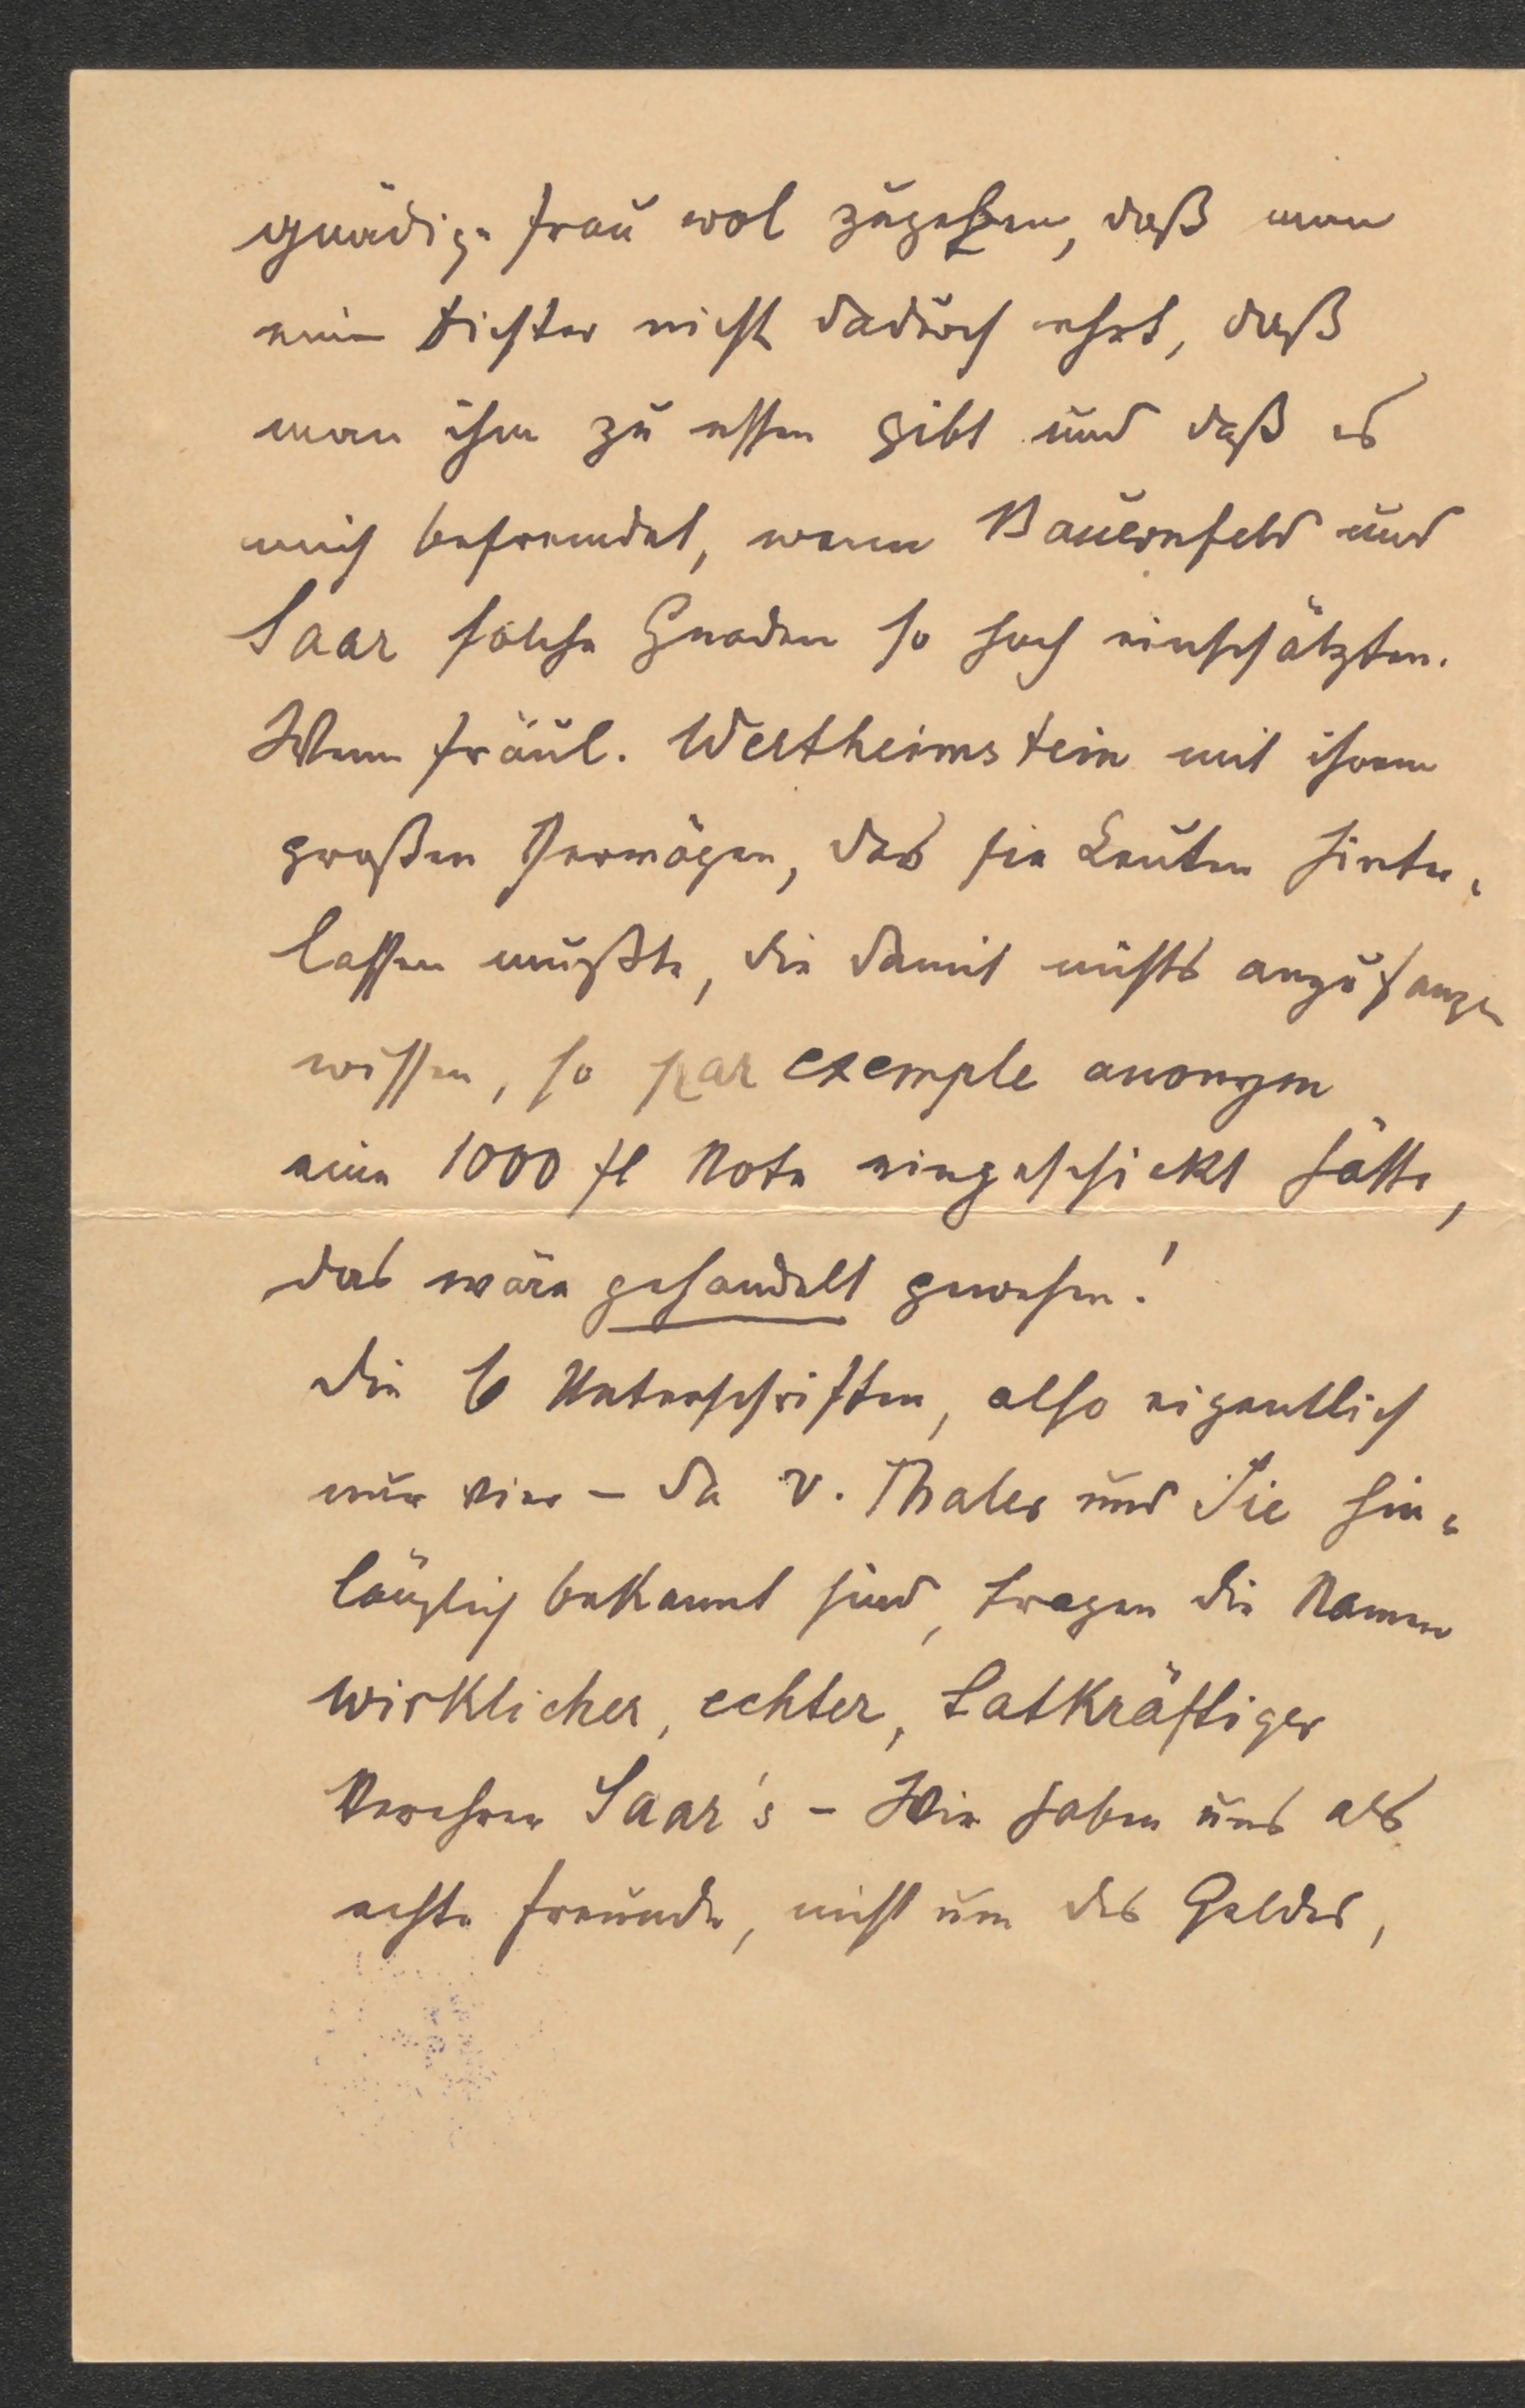 gnädige Frau wol zugeben, daß man
einen Dichter nicht dadurch ehrt, daß
man ihm zu essen gibt und daß es
mich befremdet, wenn Bauernfeld und
Saar solche Gnaden so hoch einschätzten.
Wenn Fräul. Wertheimstein mit ihrem
großen Vermögen, das sie Leuten hinter-
lassen mußte, die damit nichts anzufangen
wissen, so par exemple anonym
eine 1000 fl Note eingeschickt hätte,
das wäre gehandelt gewesen!
Die 6 Unterschriften, also eigentlich
nur vier – da v. Thaler und Sie hin-
länglich bekannt sind, tragen die Namen
wirklicher, echter, tatkräftiger
Verehrer Saar's – Wir haben uns als
echte Freunde, nicht um des Geldes,